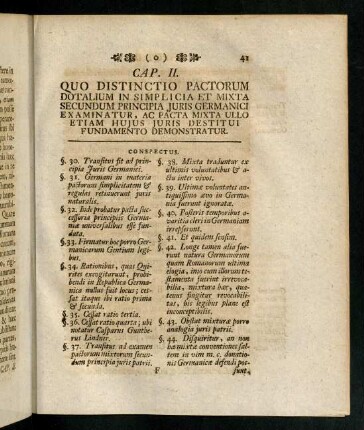 ( o ) 41
CAP. II.
QUO DISTINCTIO PACTORUM
DOTALIUM IN SIMPLICIA ET MIXTA
SECUNDUM PRINCIPIA JURIS GERMANICI
EXAMINATUR, AC PACTA MIXTA ULLO
ETIAM HUJUS JURIS DESTITUI
FUNDAMENTO DEMONSTRATUR.
CONSPECTUS.
§. 30. Transitus fit ad prin-
cipia Juris Germanici.
§. 31. Germani in materia
pactorum simplicitatem &
regulas retinuerunt juris
naturalis.
§. 32. Inde probatur pacta suc-
cessoria principiis Germa-
niæ universalibus esse fun-
data.
§. 33. Firmatur hoc porro Ger-
manicarum Gentium legi-
bus.
§. 34. Rationibus, quas Qui-
rites excogitarunt, prohi-
bendi in Republica Germa-
nica nullus fuit locus; ces-
sat itaque ibi ratio prima
& secunda.
§. 35. Cessat ratio tertia.
§. 36. Cessat ratio quarta; ubi
notatur Casparus Gunthe-
rus Lindner.
§. 37. Transitus ad examen
pactorum mixtorum secun-
dum principia juris patrii.
§. 38. Mixta traduntur ex
ultimis voluntatibus & a-
ctu inter vivos.
§. 39. Ultimæ voluntates an-
tiquissimo ævo in Germa-
nia fuerunt ignoratæ.
§. 40. Posteris temporibus a-
varitia cleri in Germaniam
irrepserunt.
§. 41. Et quidem sensim.
§. 42. Longe tamen alia fue-
runt natura Germanorum
quam Romanorum ultima
elogia, imo cum illorum te-
stamenta fuerint irrevoca-
bilia, mixtura hæc, qua-
tenus singitur revocabili-
tas, his legibus plane est
inconceptibilis.
§. 43. Obstat mixturæ porro
analogia juris patrii.
§. 44. Disquiritur, an non
ba mixtæ conventiones sal-
tem in vim m. c. donatio-
nis Germanicæ defendi pos-
F sunt,